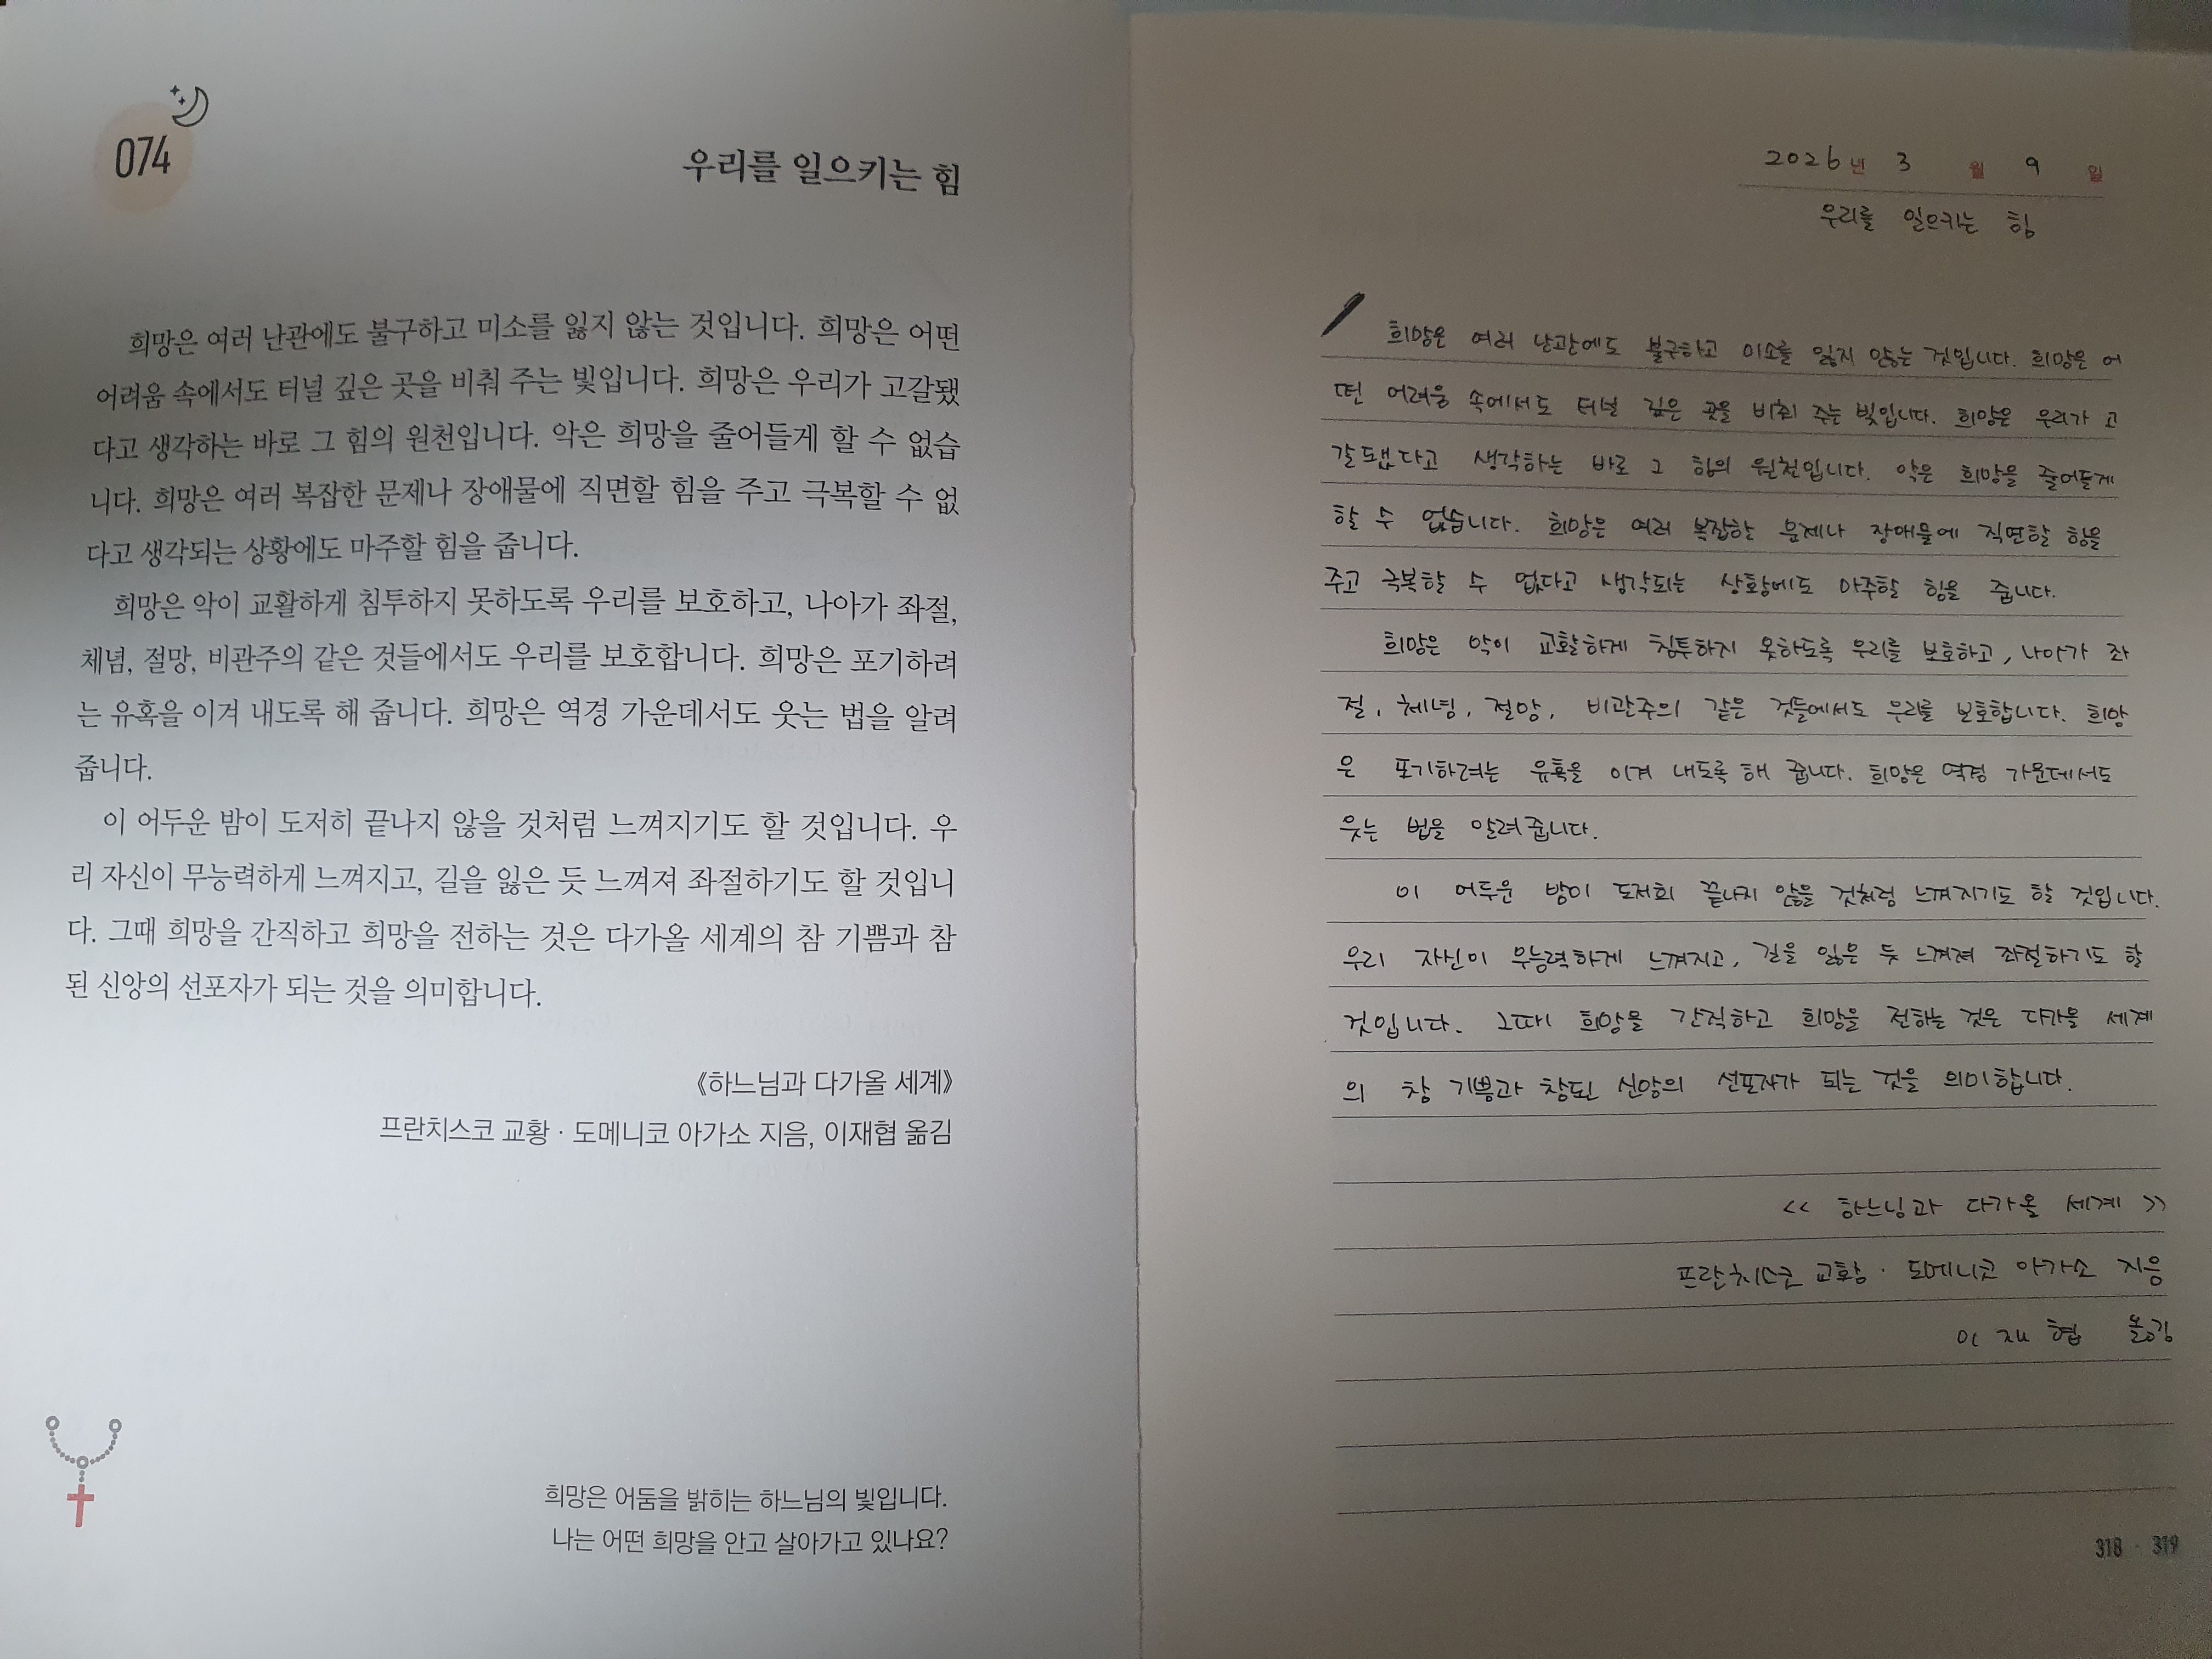 074
우리를 일으키는 힘
희망은 여러 난관에도 불구하고 미소를 잃지 않는 것입니다. 희망은 어떤
어려움 속에서도 터널 깊은 곳을 비춰 주는 빛입니다. 희망은 우리가 고갈됐
다고 생각하는 바로 그 힘의 원천입니다. 악은 희망을 줄어들게 할 수 없습
니다. 희망은 여러 복잡한 문제나 장애물에 직면할 힘을 주고 극복할 수 없
다고 생각되는 상황에도 마주할 힘을 줍니다.
희망은 악이 교활하게 침투하지 못하도록 우리를 보호하고, 나아가 좌절,
체념, 절망, 비관주의 같은 것들에서도 우리를 보호합니다. 희망은 포기하려
는 유혹을 이겨 내도록 해 줍니다. 희망은 역경 가운데서도 웃는 법을 알려
줍니다.
이 어두운 밤이 도저히 끝나지 않을 것처럼 느껴지기도 할 것입니다. 우
리 자신이 무능력하게 느껴지고, 길을 잃은 듯 느껴져 좌절하기도 할 것입니
다. 그때 희망을 간직하고 희망을 전하는 것은 다가올 세계의 참 기쁨과 참
된 신앙의 선포자가 되는 것을 의미합니다.
《하느님과 다가올 세계》
프란치스코 교황 · 도메니코 아가소 지음, 이재협 옮김
희망은 어둠을 밝히는 하느님의 빛입니다.
나는 어떤 희망을 안고 살아가고 있나요?
2026년 3월 9일
우리를 일으키는 힘
희망은 여러 난관에도 불구하고 미소를 잃지 않는 것입니다. 희망은 어
떤 어려움 속에서도 터널 깊은 곳을 비춰 주는 빛입니다. 희망은 우리가 고
갈됐다고 생각하는 바로 그 힘의 원천입니다. 악은 희망을 줄어들게
할 수 없습니다. 희망은 여러 복잡한 문제나 장애물에 직면할 힘을
주고 극복할 수 없다고 생각되는 상황에도 마주할 힘을 줍니다.
희망은 악이 교활하게 침투하지 못하도록 우리를 보호하고, 나아가 좌
절, 체념, 절망, 비관주의 같은 것들에서도 우리를 보호합니다. 희망
은 포기하려는 유혹을 이겨 내도록 해 줍니다. 희망은 역경 가운데서도
웃는 법을 알려줍니다.
이 어두운 밤이 도저히 끝나지 않을 것처럼 느껴지기도 할 것입니다.
우리 자신이 무능력하게 느껴지고, 길을 잃은 듯 느껴져 좌절하기도 할
것입니다. 그때 희망을 간직하고 희망을 전하는 것은 다가올 세계
의 참 기쁨과 참된 신앙의 선포자가 되는 것을 의미합니다.
<< 하느님과 다가올 세계 >>
프란치스코 교황 · 도메니코 아가소 지음
이재협 옮김
318 · 319